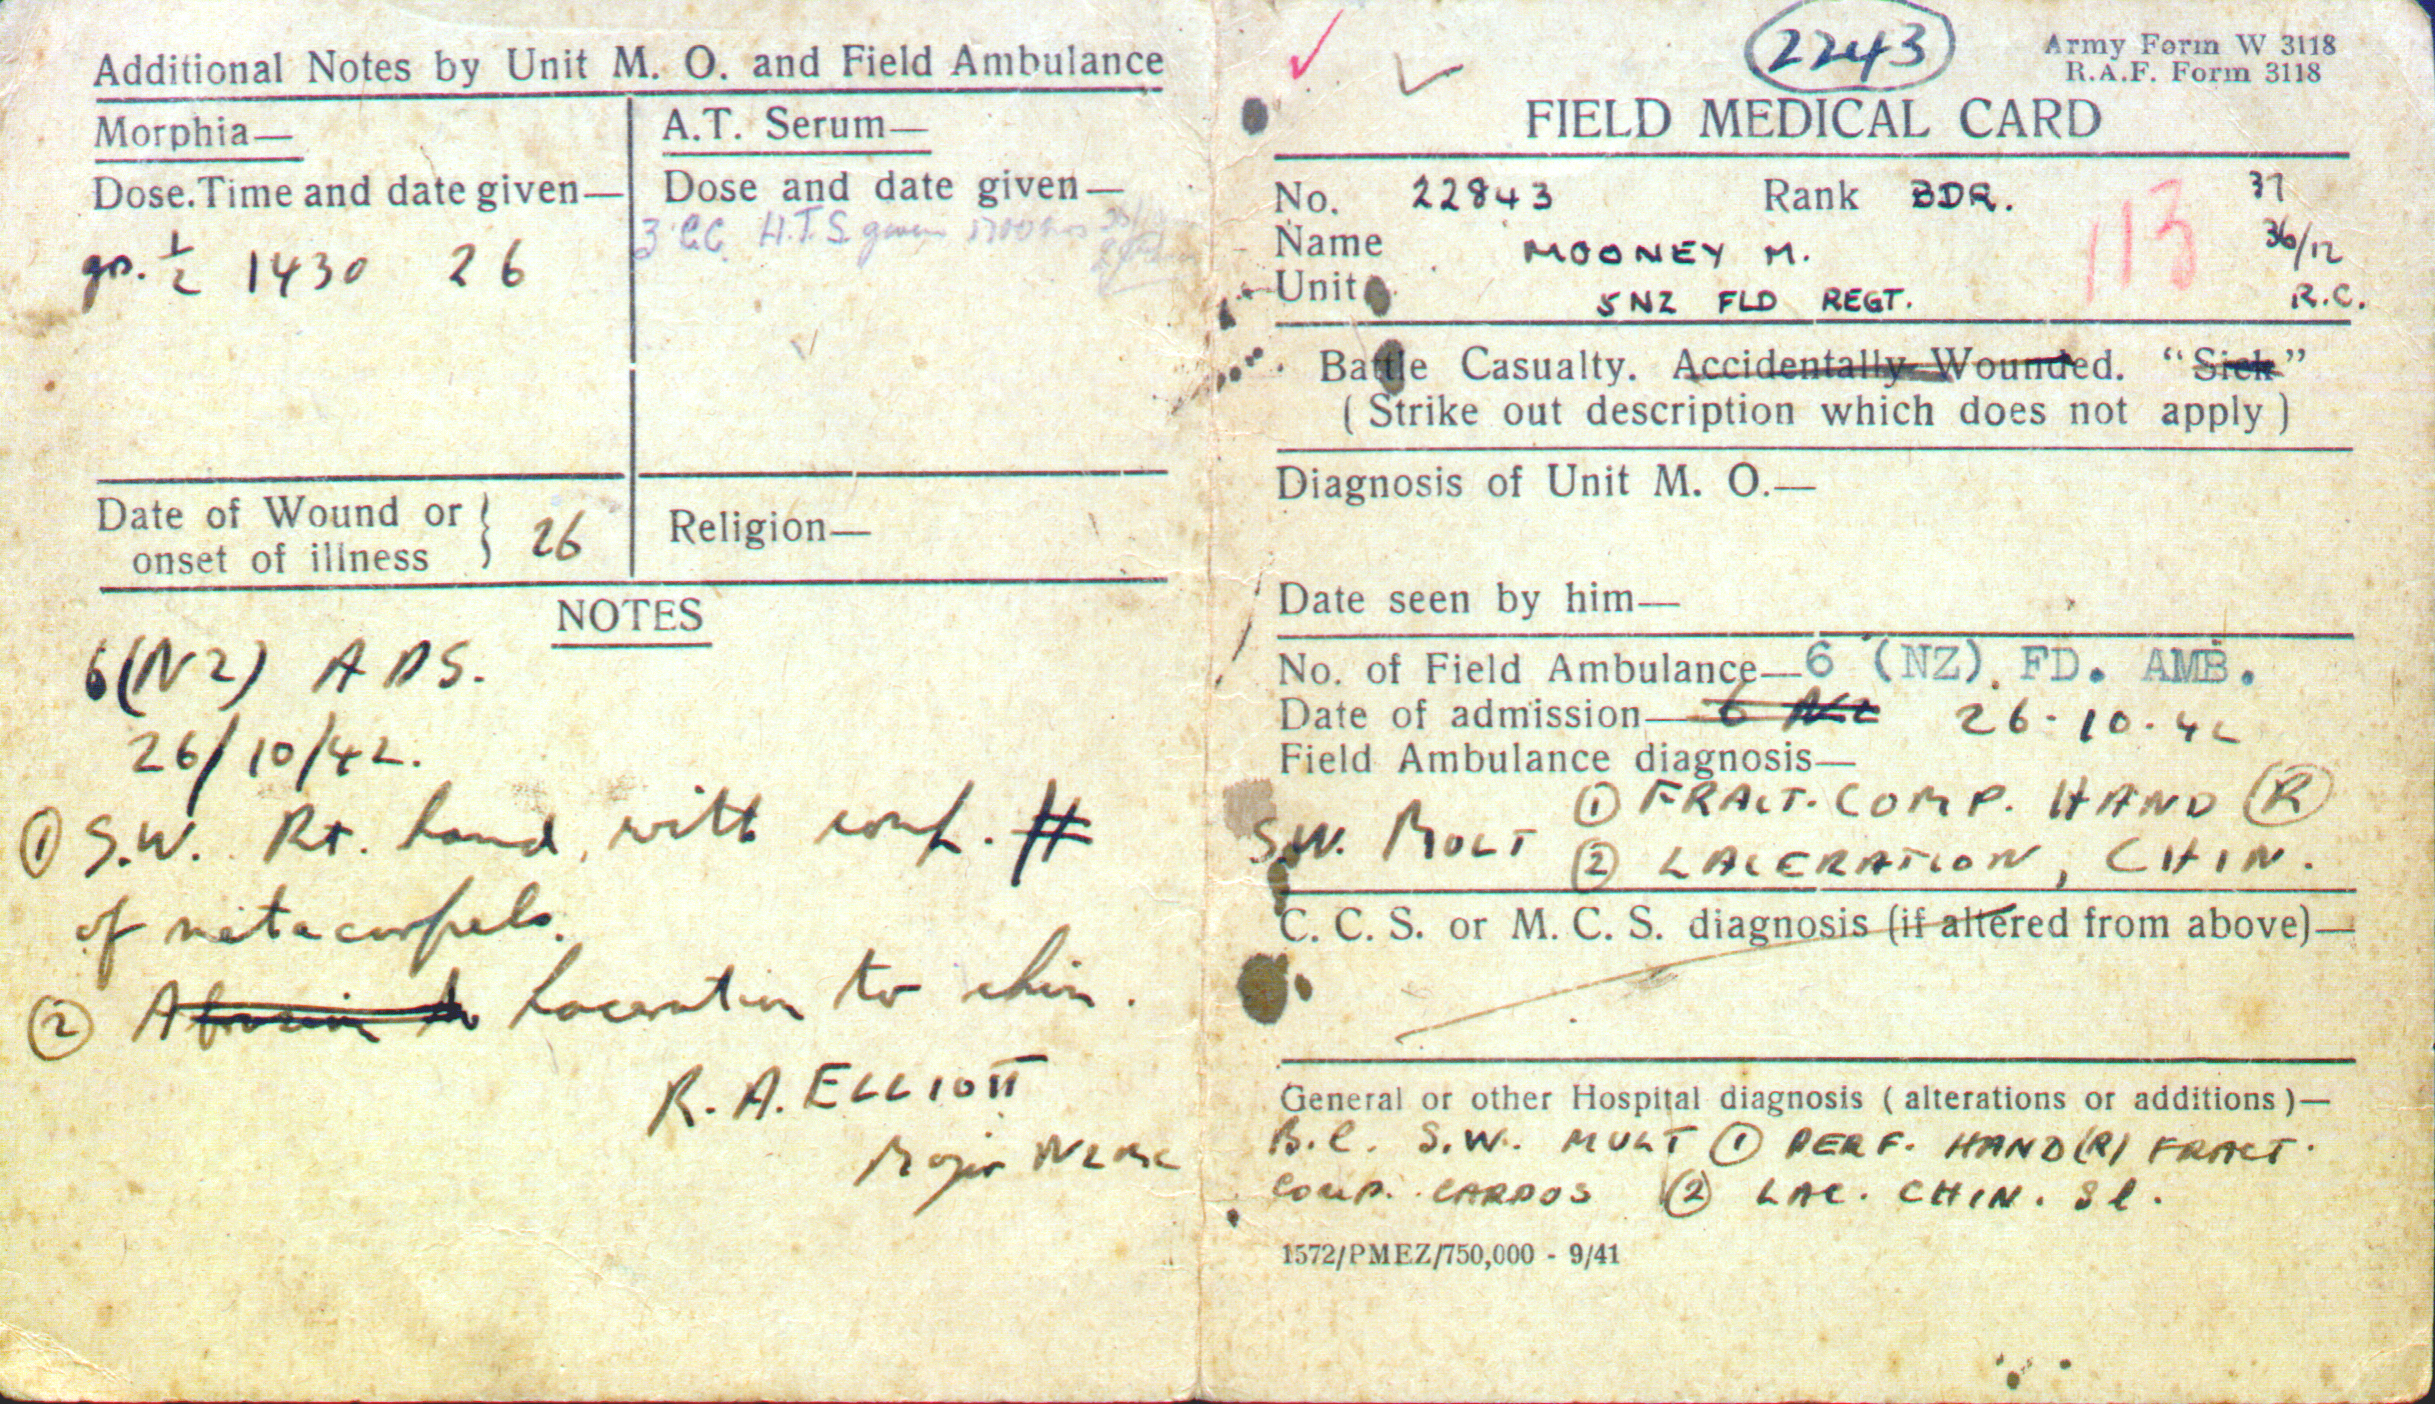 Additional Notes by Unit M. O. and Field Ambulance
Morphia—
Dose. Time and date given—
gr. ½ 1430 26
A.T. Serum—
Dose and date given—
3 CC. H.T.S. given 1700 hrs
Date of Wound or
onset of illness } 26
Religion—
NOTES
6(NZ) ADS.
26/10/42.
① S.W. Rt. hand, with comp. #
of metacarpals.
② Abrasion to Laceration to chin.
R. A. ELLIOTT
Major NZMC
2243
Army Form W 3118
R.A.F. Form 3118
FIELD MEDICAL CARD
No. 22843 Rank BDR. 37
Name MOONEY M. 113 36/12
Unit 5 NZ FLD REGT. R.C.
Battle Casualty. Accidentally Wounded. "Sick"
( Strike out description which does not apply )
Diagnosis of Unit M. O.—
Date seen by him—
No. of Field Ambulance—6 (NZ). FD. AMB.
Date of admission—6 NZ 26-10-42
Field Ambulance diagnosis—
① FRACT. COMP. HAND (R)
S.W. MULT ② LACERATION, CHIN.
C. C. S. or M. C. S. diagnosis (if altered from above)—
General or other Hospital diagnosis ( alterations or additions )—
B.C. S.W. MULT ① PERF. HAND (R) FRACT.
COMP. CARPOS ② LAC. CHIN. Sl.
1572/PMEZ/750,000 - 9/41